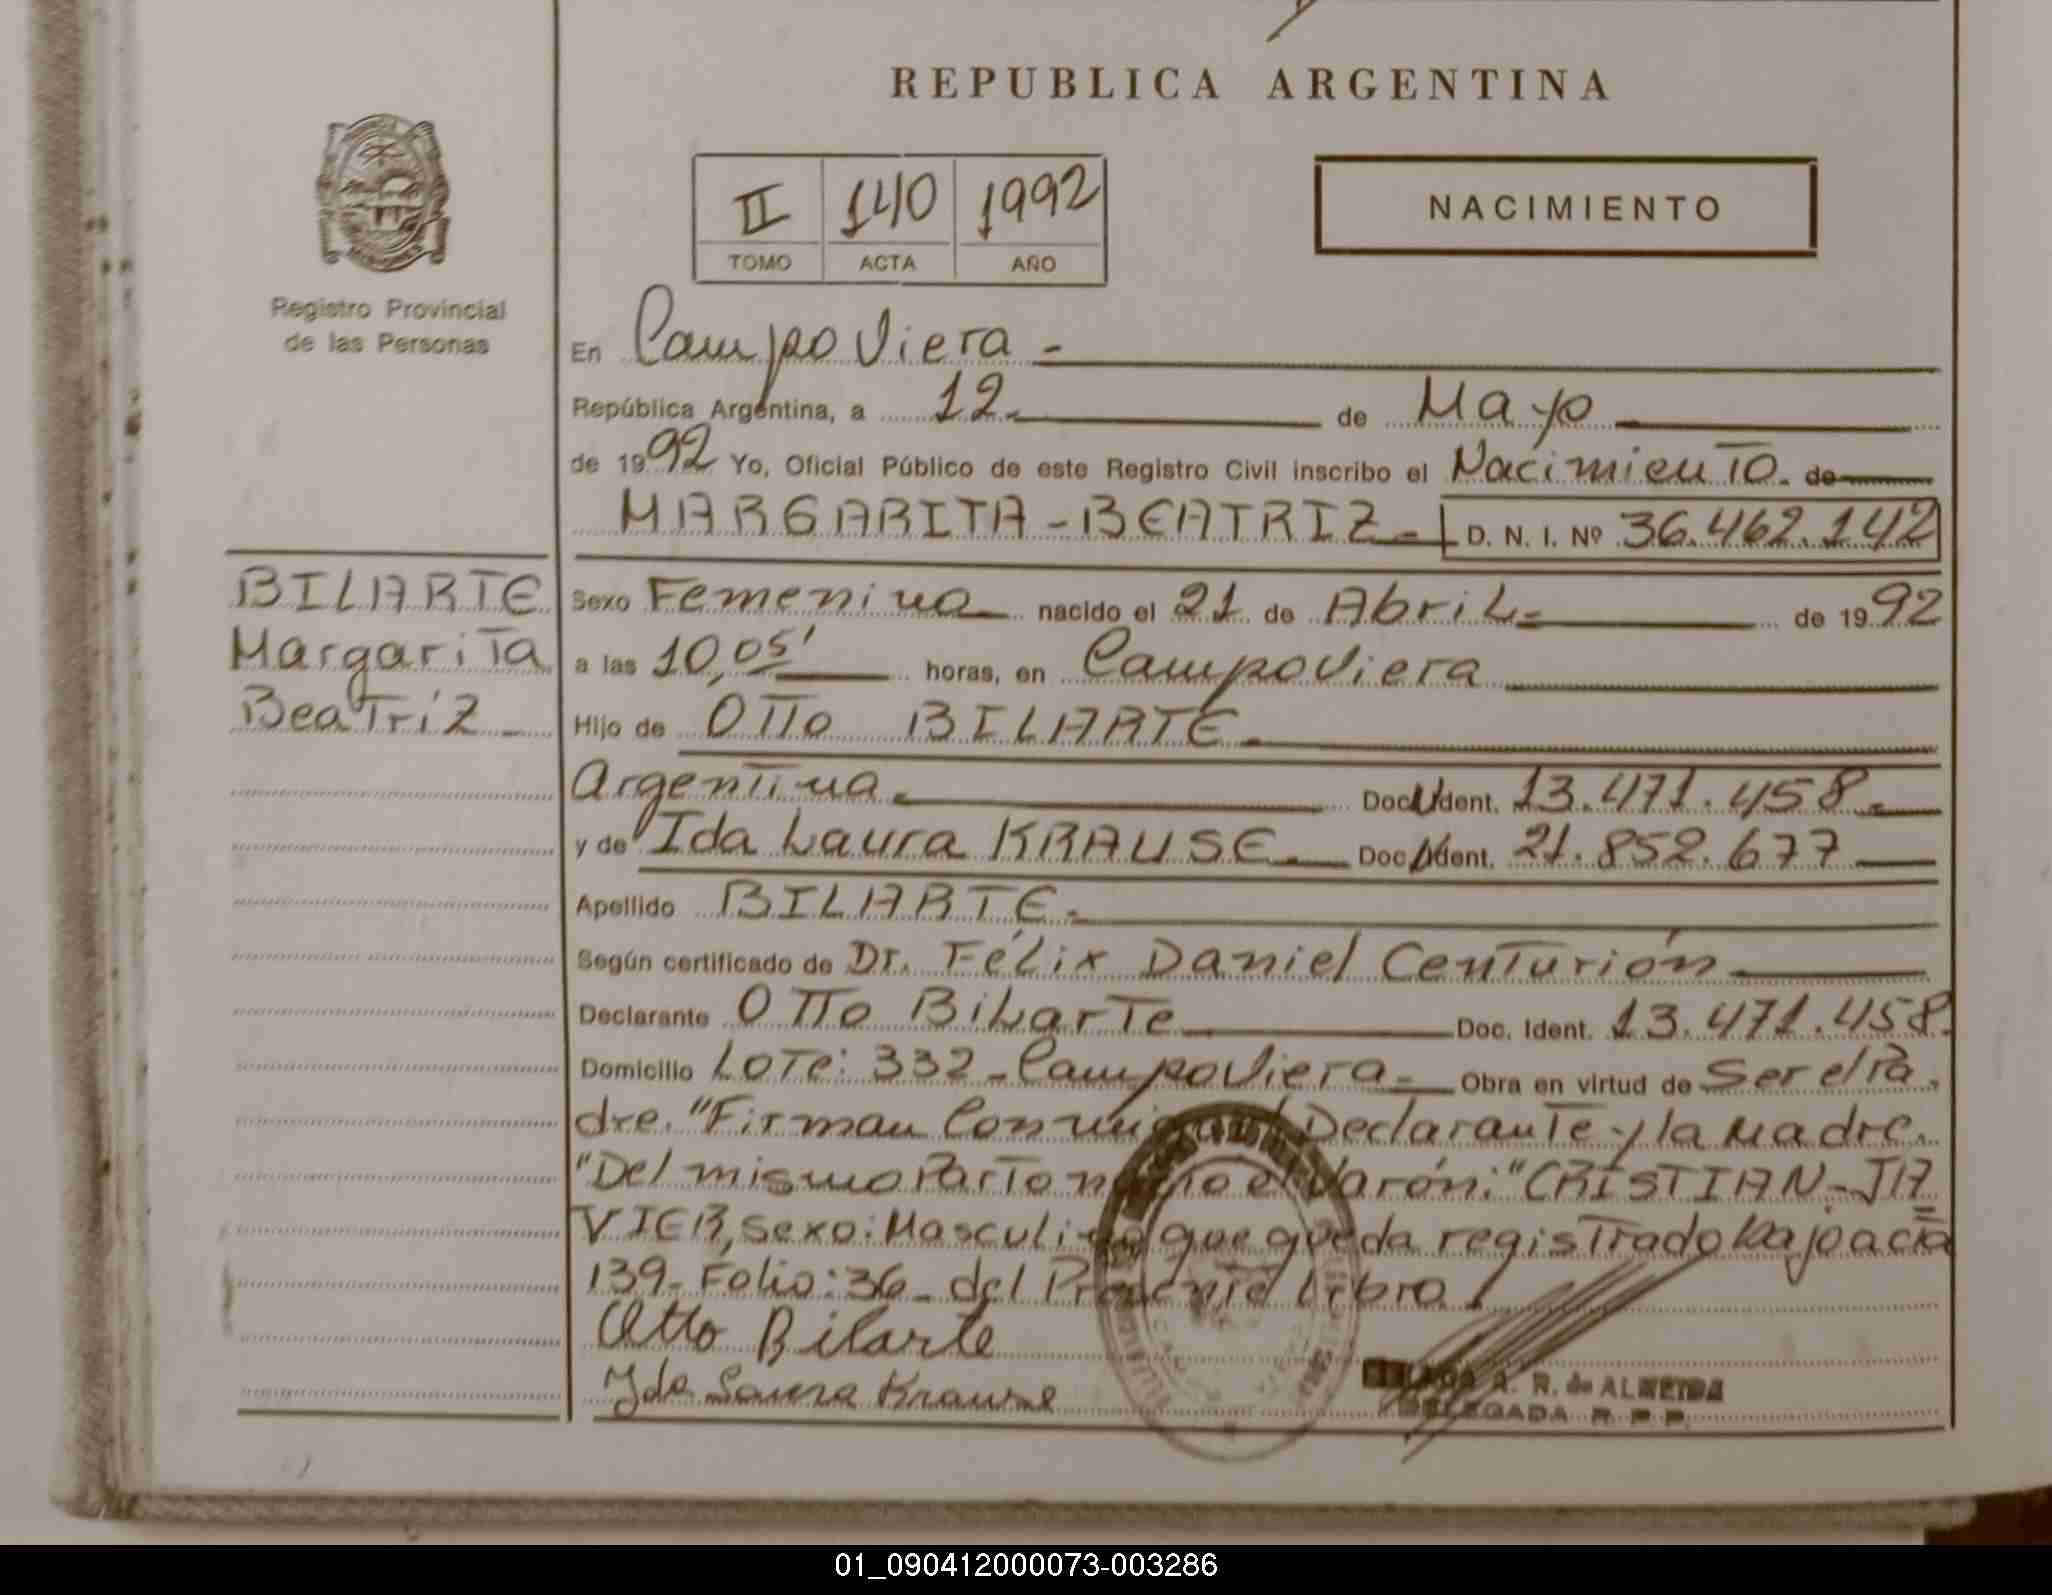 REPUBLICA ARGENTINA
II 140 1992
TOMO ACTA AÑO
NACIMIENTO
Registro Provincial
de las Personas
En Campo Viera -
República Argentina, a 12 de Mayo
de 1992 Yo, Oficial Público de este Registro Civil inscribo el Nacimiento. de
MARGARITA - BEATRIZ - D. N. I. Nº 36.462.142
BILARTE
Margarita
Beatriz
Sexo Femenino nacido el 21 de Abril - de 1992
a las 10,05' horas, en Campo Viera
Hijo de Otto BILARTE -
Argentina. Doc. Ident. 13.471.458 -
y de Ida Laura KRAUSE. Doc. Ident. 21.852.677
Apellido BILARTE -
Según certificado de Dr. Félix Daniel Centurión
Declarante Otto Bilarte Doc. Ident. 13.471.458
Domicilio Lote: 332 - Campo Viera - Obra en virtud de Ser el Pa
dre. "Firman Conmigo el Declarante y la Madre.
"Del mismo Parto nacio el Varón: "CRISTIAN-JA
VIER, Sexo: Masculino que queda registrado bajo acta
139 - Folio: 36 - del Presente Libro
Otto Bilarte
Ida Laura Krause
A. R. de ALMEIDA
DELEGADA R. P. P.
01_090412000073-003286